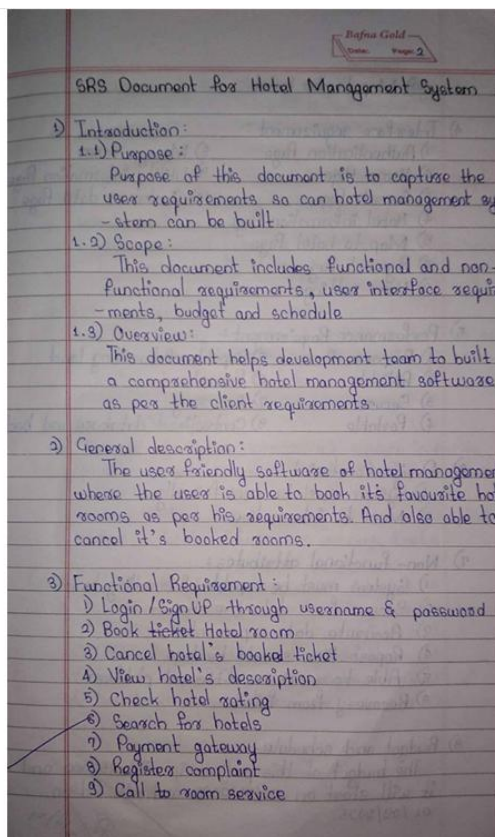 Bafna Gold
Date: Page: 2
SRS Document for Hotel Management System
1) Introduction:
1.1) Purpose:
Purpose of this document is to capture the
user requirements so can hotel management sy
-stem can be built
1.2) Scope:
This document includes functional and non-
functional requirements, user interface requir
-ments, budget and schedule
1.3) Overview:
This document helps development team to built
a comprehensive hotel management software
as per the client requirements
2) General description:
The user friendly software of hotel managemen
where the user is able to book it's favourite ho
rooms as per his requirements. And also able to
cancel it's booked rooms.
3) Functional Requirement:
1) Login / Sign UP through username & password
2) Book ticket Hotel room
3) Cancel hotel's booked ticket
4) View hotel's description
5) Check hotel rating
6) Search for hotels
7) Payment gateway
8) Register complaint
9) Call to room service